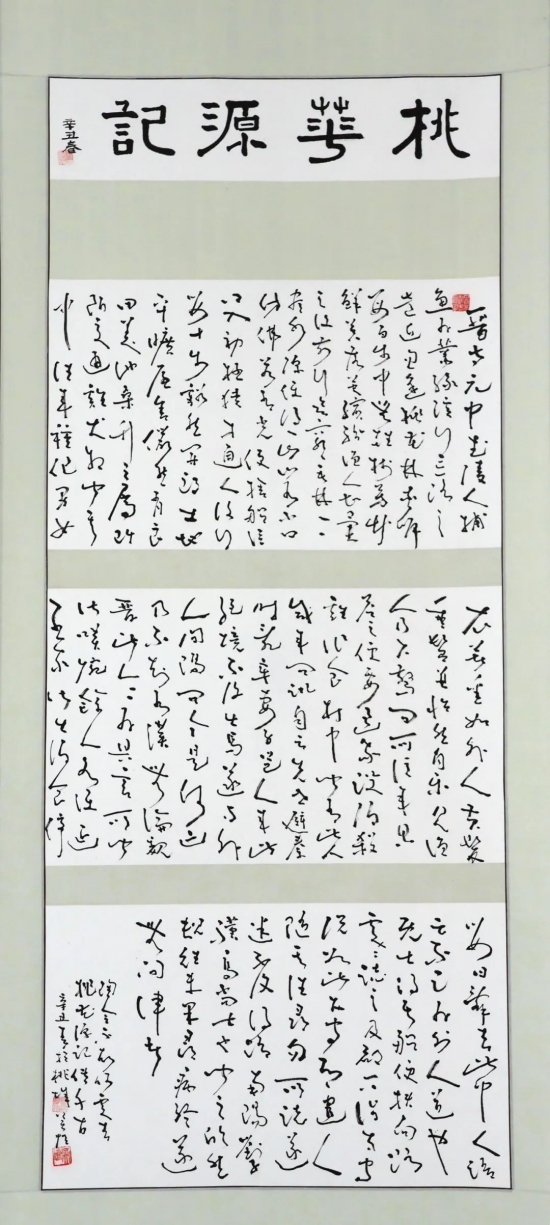 桃華源記
辛丑春
晉太元中武陵人捕
魚為業緣溪行忘路之
遠近忽逢桃花林夾岸
數百步中無雜樹芳草
鮮美落英繽紛漁人甚異
之復前行欲窮其林林
盡水源便得一山山有小口
彷彿若有光便捨船從
口入初極狹才通人復行
數十步豁然開朗土地
平曠屋舍儼然有良
田美池桑竹之屬阡
陌交通雞犬相聞其
中往來種作男女
衣著悉如外人黃髮
垂髫並怡然自樂見漁
人乃大驚問所從來具
答之便要還家設酒殺
雞作食村中聞有此人
咸來問訊自云先世避秦
時亂率妻子邑人來此
絕境不復出焉遂與外
人間隔問今是何世
乃不知有漢無論魏
晉此人一一為具言所聞
皆嘆惋餘人各復延
至家皆出酒食停
數日辭去此中人語
云不足為外人道也
既出得其船便扶向路
處處誌之及郡下詣太守
說如此太守即遣人
隨其往尋向所誌遂
迷不復得路南陽劉子
驥高尚士也聞之欣然
規往未果尋病終遂
無問津者
桃花源記千古
辛丑